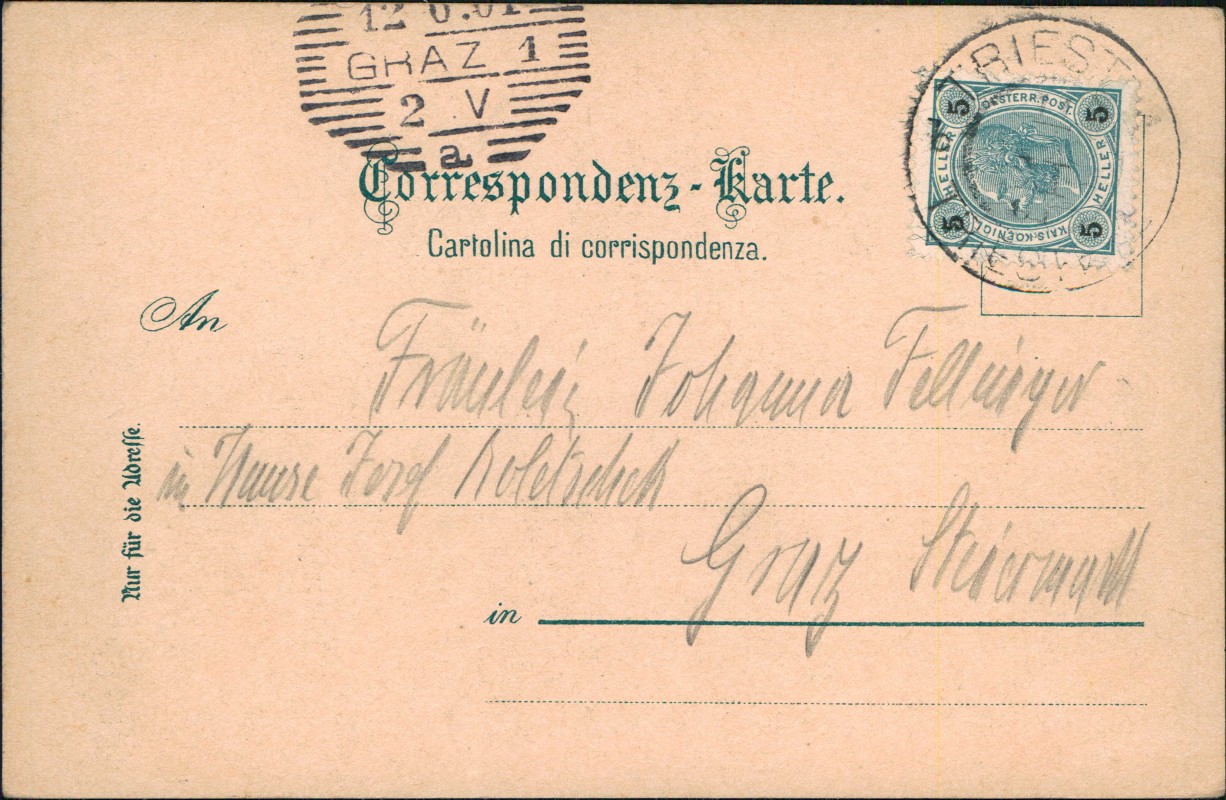 12 6.01
GRAZ 1
2 V
a
TRIEST
OESTERR. POST.
5 5
HELLER HELLER
5 5
KAIS. KOENIGL.
Correspondenz-Karte.
Cartolina di corrispondenza.
An
Fräulein Johanna Fellinger
im Hause Josef Koletschek
Graz Steiermark
in
Nur für die Adresse.